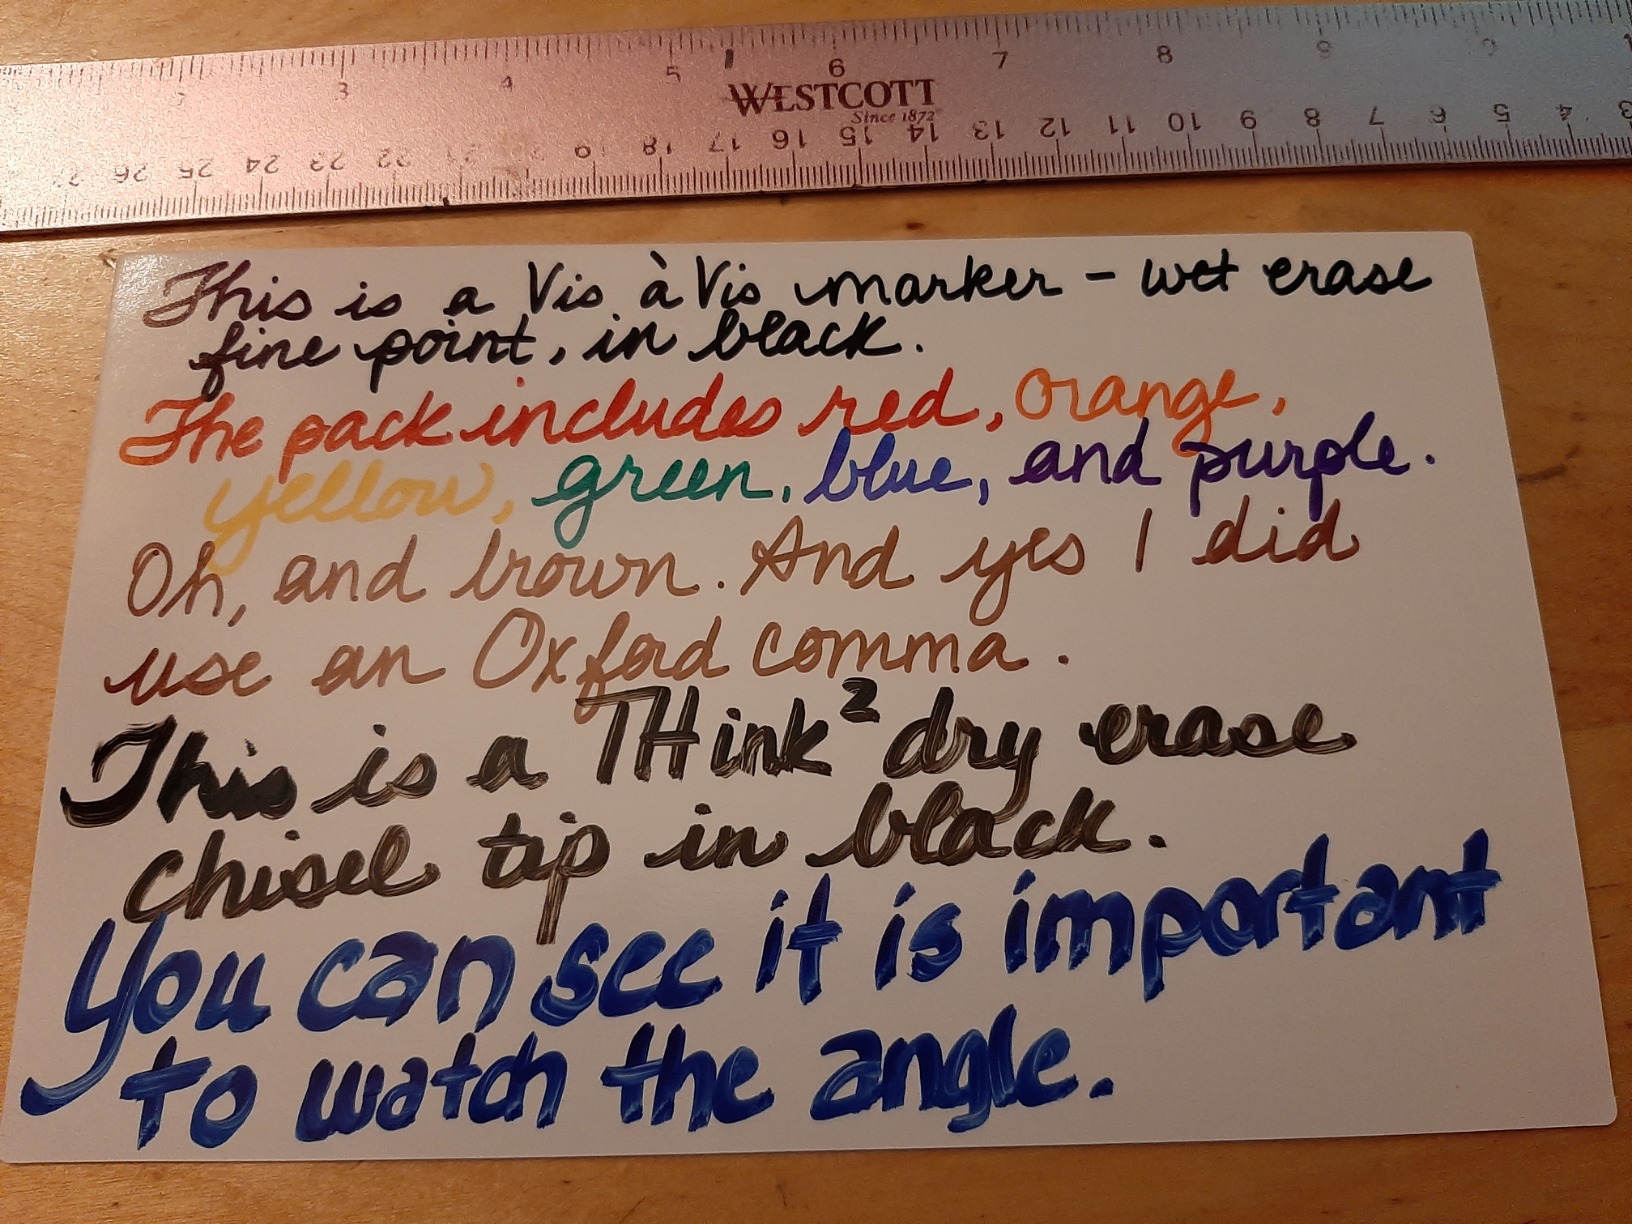 3 4 5 6 7 8 9
WESTCOTT
Since 1872
26 25 24 23 22 21 19 18 17 16 15 14 13 12 11 10 9 8 7 6 5 4 3
This is a Vis à Vis marker - wet erase
fine point, in black.
The pack includes red, orange,
yellow, green, blue, and purple.
Oh, and brown. And yes I did
use an Oxford comma.
This is a THink² dry erase
chisel tip in black.
You can see it is important
to watch the angle.